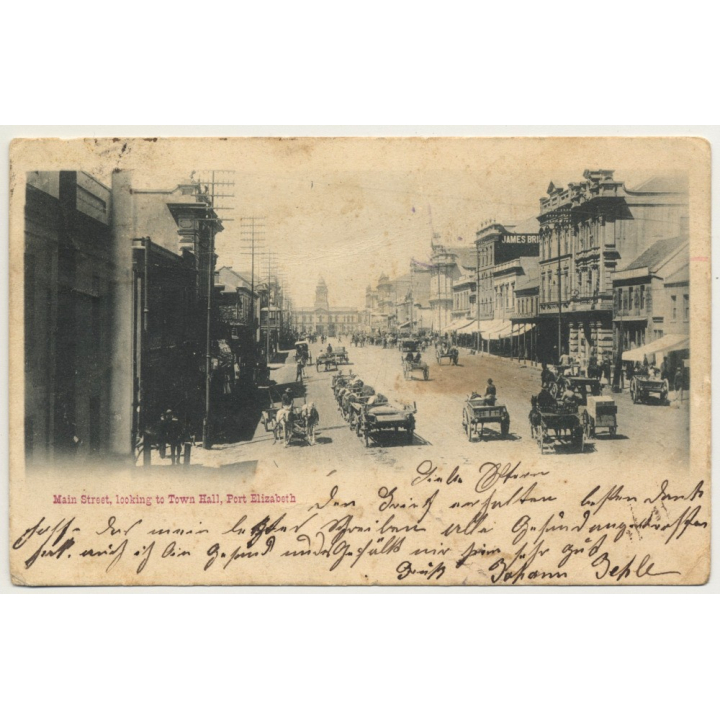 JAMES BRI
Main Street, looking to Town Hall, Port Elizabeth
Liebe Eltern
Den Brief erhalten besten Dank
hoffe das mein letztes Schreiben alle Gesund angetroffen
hat. auch ich bin Gesund und es Gefällt mir hier sehr gut
Gruß Johann